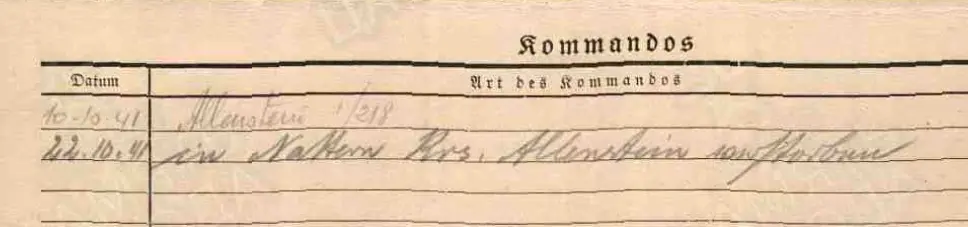 Kommandos
Datum Art des Kommandos
10-10-41 Allenstein 1/218
22.10.41 in Nattern Krs. Allenstein verstorben